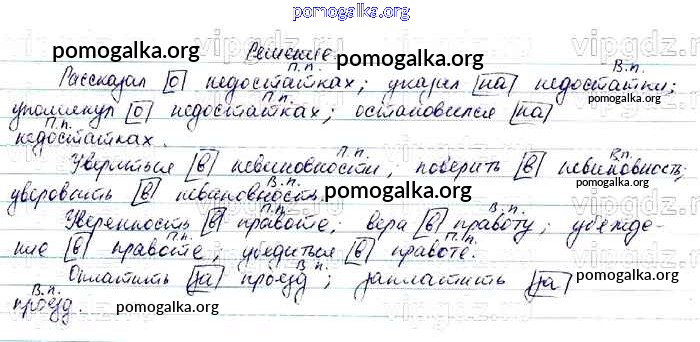 pomogalka.org
Решение.
П.п. В.п.
Рассказал о недостатках; указал на недостатки;
П.п.
упомянул о недостатках; остановился на
П.п.
недостатках.
П.п. В.п.
Увериться в невиновности, поверить в невиновность,
В.п.
уверовать в невиновность.
П.п. В.п.
Уверенность в правоте, вера в правоту; убежде-
П.п. П.п.
ние в правоте, убедиться в правоте.
В.п.
Оплатить за проезд; заплатить за
В.п.
проезд.
pomogalka.org
pomogalka.org
pomogalka.org
pomogalka.org
pomogalka.org
pomogalka.org
pomogalka.org
pomogalka.org
pomogalka.org